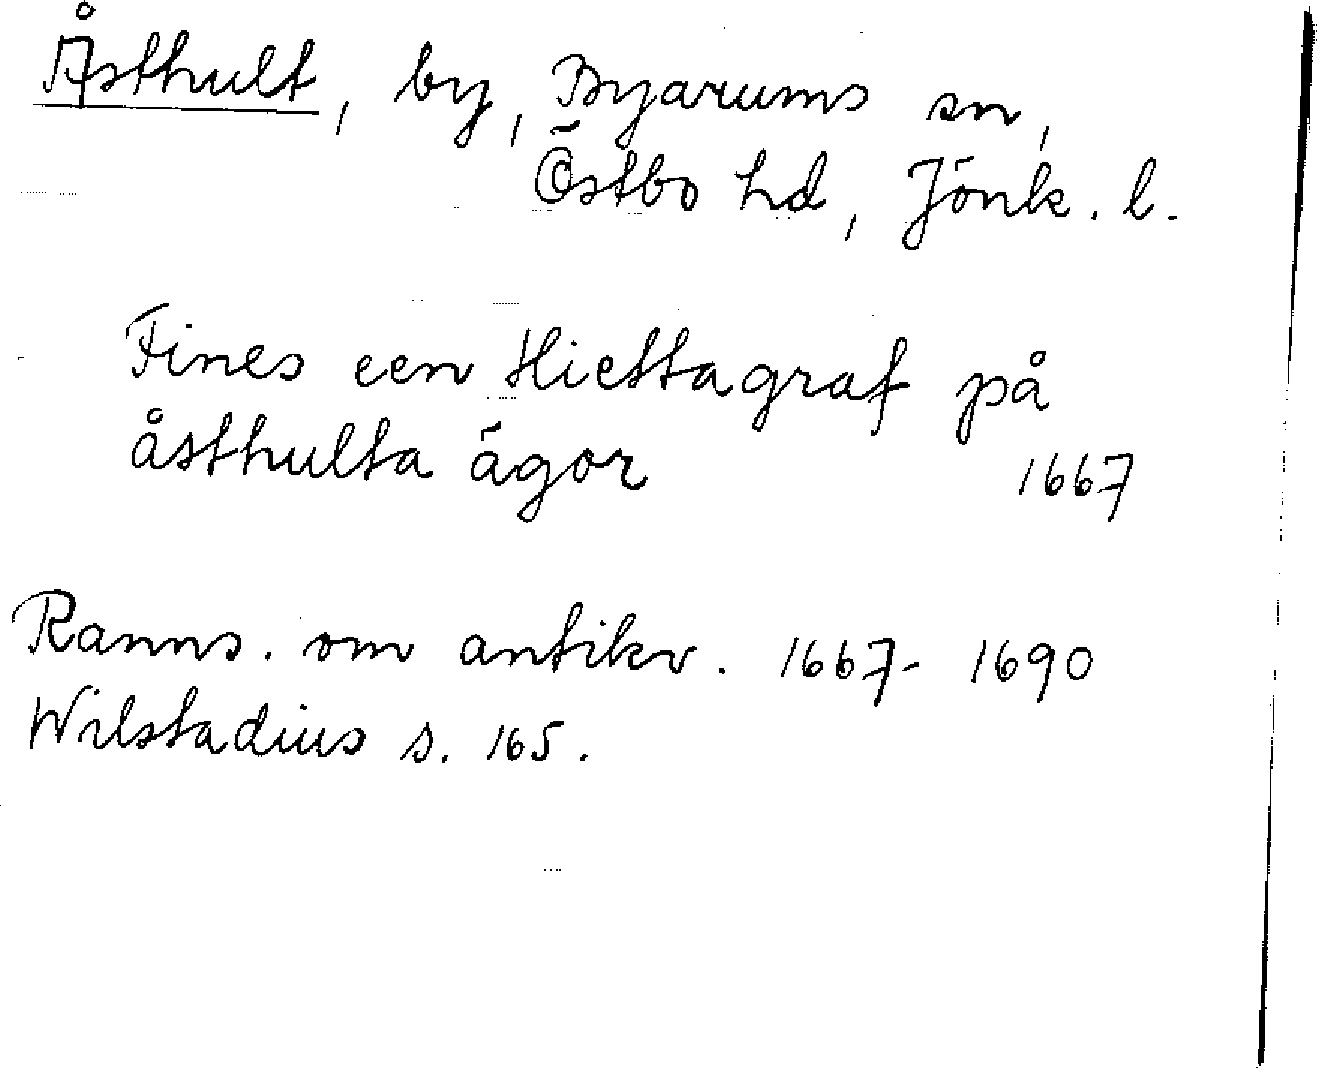 Åsthult, by, Byarums sn,
Östbo hd, Jönk. l.
Fines een Hiettagraf på
åsthulta ägor 1667
Ranns. om antikv. 1667-1690
Wilstadius s. 165.